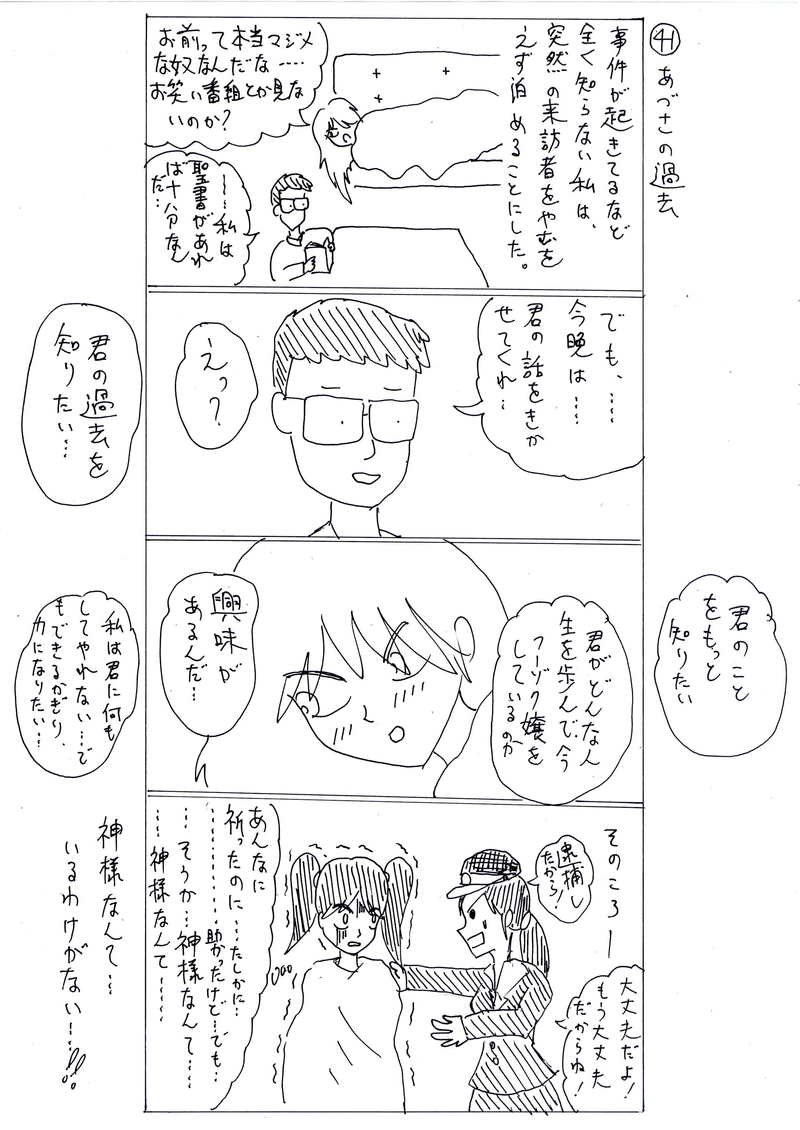 ㊶ あづさの過去
事件が起きてるなど
全く知らない私は、
突然の来訪者をやむを
えず泊めることにした。
お前って本当マジメ
な奴なんだな……
お笑い番組とか見な
いのか?
……私は
聖書があれ
ば十分なん
だ…
でも、……
今晩は……
君の話をきか
せてくれ…
えっ?
君の過去を
知りたい……
君のこと
をもっと
知りたい
君がどんな人
生を歩んで、今
フーゾク嬢を
しているのか
興味が
あるんだ…
私は君に何も
してやれない…で
もできるかぎり、
力になりたい…
そのころー
逮捕し
たから!
大丈夫だよ!
もう大丈夫
だからね!
あんなに
祈ったのに……たしかに…
…………助かったけど…でも…
……そうか…神様なんて……
……神様なんて……
神様なんて…
いるわけがない……!!